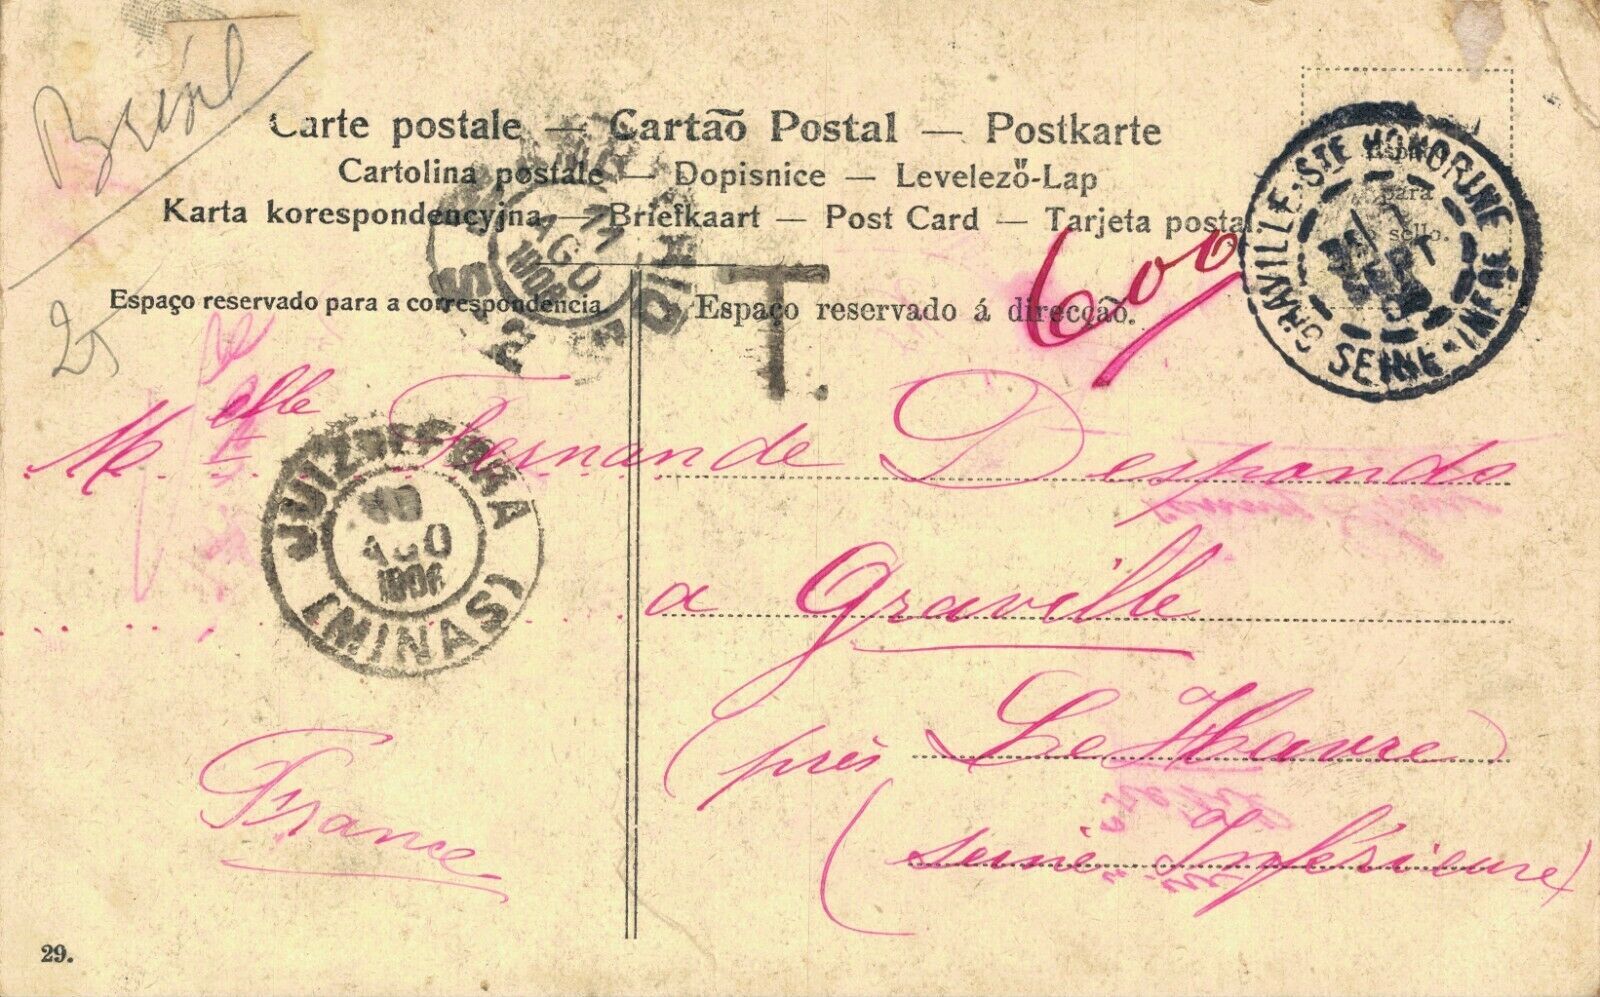 Brésil
25
Carte postale — Cartão Postal — Postkarte
Cartolina postale — Dopisnice — Levelezö-Lap
Karta korespondencyjna — Briefkaart — Post Card — Tarjeta postal.
Espaço reservado para a correspondencia
Espaço reservado á direcção.
para
sello.
600
T.
11
AGO
1906
GRAVILLE-STE HONORINE
SEINE-INFRE
Melle Fernande Desponds
a Graville
près Le Havre
(Seine Inférieure)
France
JUIZ DE FORA
10
AGO
1906
(MINAS)
29.